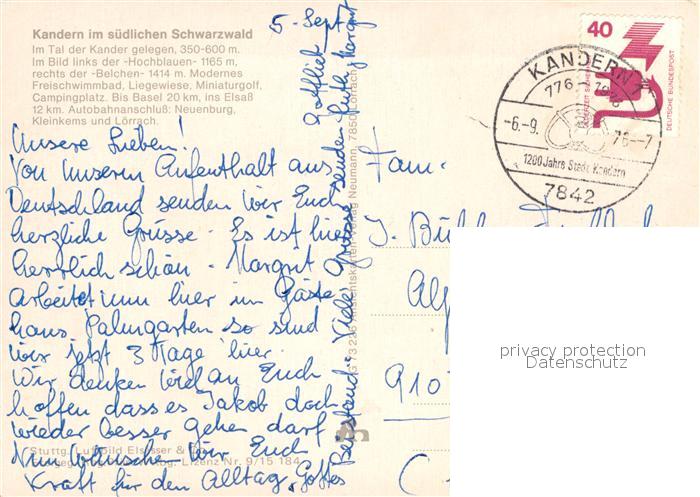 Kandern im südlichen Schwarzwald
Im Tal der Kander gelegen, 350-600 m.
Im Bild links der -Hochblauen- 1165 m,
rechts der -Belchen- 1414 m. Modernes
Freischwimmbad, Liegewiese, Miniaturgolf,
Campingplatz. Bis Basel 20 km, ins Elsaß
12 km. Autobahnanschluß: Neuenburg,
Kleinkems und Lörrach.
5. Sept.
Unsere Lieben!
Von unserem Aufenthalt aus
Deutschland senden wir Euch
herzliche Grüsse. Es ist hier
herrlich schön. Margrit
arbeitet nun hier im Gäste
haus Palmgarten so sind
wir jetzt 3 Tage hier.
Wir denken viel an Euch
hoffen dass es Jakob doch
wieder besser gehen darf
Nun wünschen wir Euch
Kraft für den Alltag, Gottes
Beistand. Viele Grüsse senden Ruth, Margrit
Gottlieb
Stuttg. Luftbild Elsässer &
Lizenz Nr. 9/15 184
Ansichtskarten-Verlag Neumann, 7850 Lörrach
Fam.
J.
910
40
DEUTSCHE BUNDESPOST
KANDERN 1
776 1976
-6.-9. 76--7
1200 Jahre Stadt Kandern
7842
privacy protection
Datenschutz